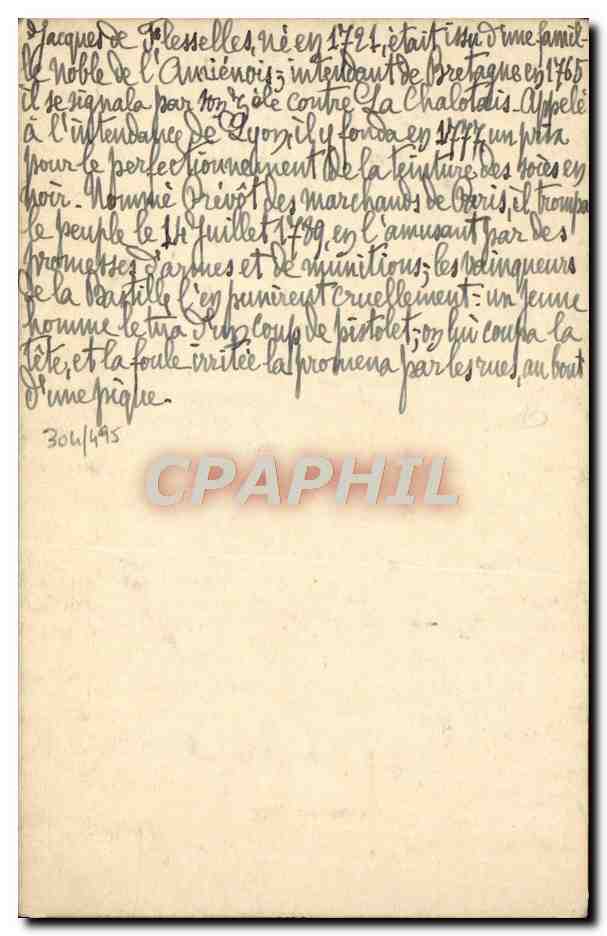 Jacques de Flesselles, né en 1721, était issu d'une famil-
le noble de l'Amiénois; intendant de Bretagne en 1765
il se signala par son zèle contre La Chalotais. Appelé
à l'intendance de Lyon, il y fonda en 1777, un prix
pour le perfectionnement de la teinture des soies en
noir. Nommé Prévôt des marchands de Paris, il trompa
le peuple le 14 Juillet 1789, en l'amusant par des
promesses d'armes et de munitions; les vainqueurs
de la Bastille l'en punirent cruellement: un jeune
homme le tua d'un coup de pistolet; on lui coupa la
tête, et la foule irritée la promena par les rues, au bout
d'une pique.
304/495
CPAPHIL